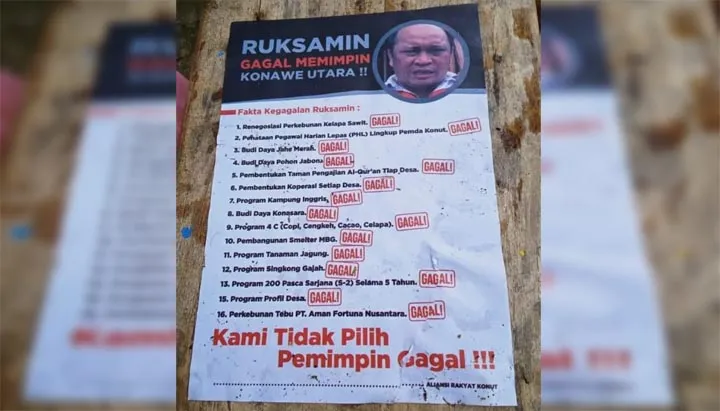 RUKSAMIN
GAGAL MEMIMPIN
KONAWE UTARA !!
Fakta Kegagalan Ruksamin :
1. Renegosiasi Perkebunan Kelapa Sawit. GAGAL!
2. Penataan Pegawai Harian Lepas (PHL) Lingkup Pemda Konut. GAGAL!
3. Budi Daya Jahe Merah. GAGAL!
4. Budi Daya Pohon Jabon. GAGAL!
5. Pembentukan Taman Pengajian Al-Qur'an Tiap Desa. GAGAL!
6. Pembentukan Koperasi Setiap Desa. GAGAL!
7. Program Kampung Inggris. GAGAL!
8. Budi Daya Konasara. GAGAL!
9. Program 4 C (Copi, Cengkeh, Cacao, Celapa). GAGAL!
10. Pembangunan Smelter MBG. GAGAL!
11. Program Tanaman Jagung. GAGAL!
12. Program Singkong Gajah. GAGAL!
13. Program 200 Pasca Sarjana (S-2) Selama 5 Tahun. GAGAL!
15. Program Profil Desa. GAGAL!
16. Perkebunan Tebu PT. Aman Fortuna Nusantara. GAGAL!
Kami Tidak Pilih
Pemimpin Gagal !!!
ALIANSI RAKYAT KONUT